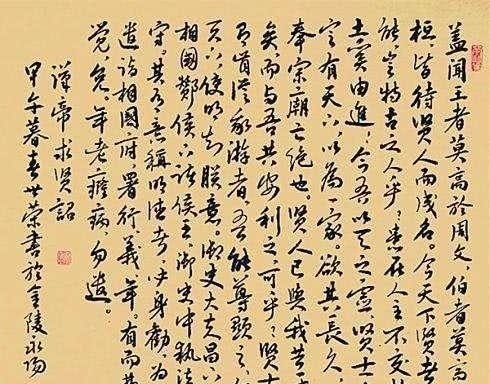 盖闻王者莫高於周文，伯者莫高
桓，皆待贤人而成名。今天下贤者
能，岂特古之人乎？患在人主不交
士奚由進，今吾以天之靈贤士
定有天下以為一家。欲其長久
奉宗廟亡绝也。贤人已與我共
矣，而与吾共安利之可乎？贤士
有肯從我游者，吾能尊顯之。
天下，使明知朕意。御史大夫昌下
相國酇侯下诸侯王，御史中执法
守。其有意稱明德者，必身勸，为
遣诣相國府署行義年。有而弗
觉，免。年老癃病，勿遣。
漢帝求贤詔
甲午暮春世荣書於金陵永陽